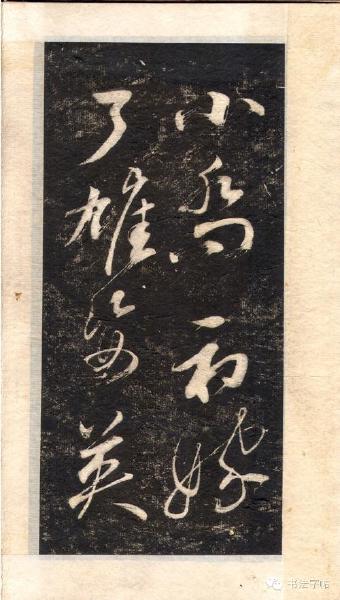 小喬初嫁
了雄姿英
书法字帖